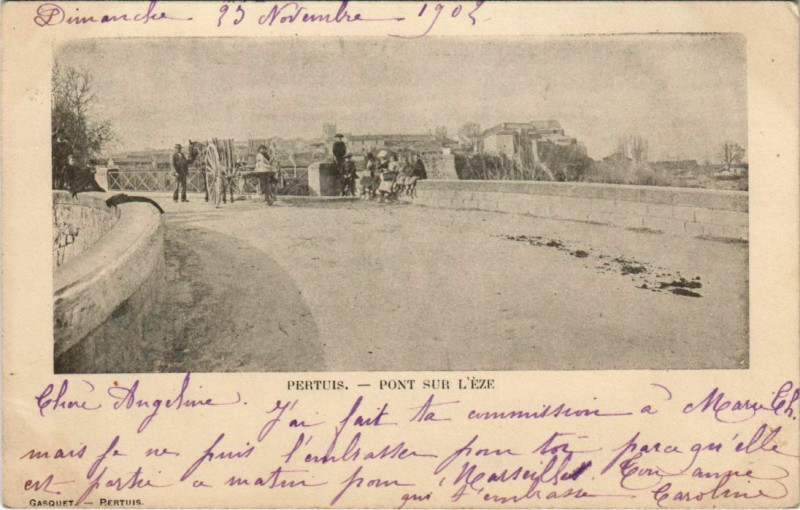 Dimanche 23 Novembre 1902
PERTUIS. — PONT SUR L'ÈZE
Chère Angeline. J'ai fait ta commission à Marie
mais je ne puis l'embrasser pour toi parce qu'elle
est partie ce matin pour Marseille. Ton amie
qui t'embrasse Caroline
GASQUET. — PERTUIS.